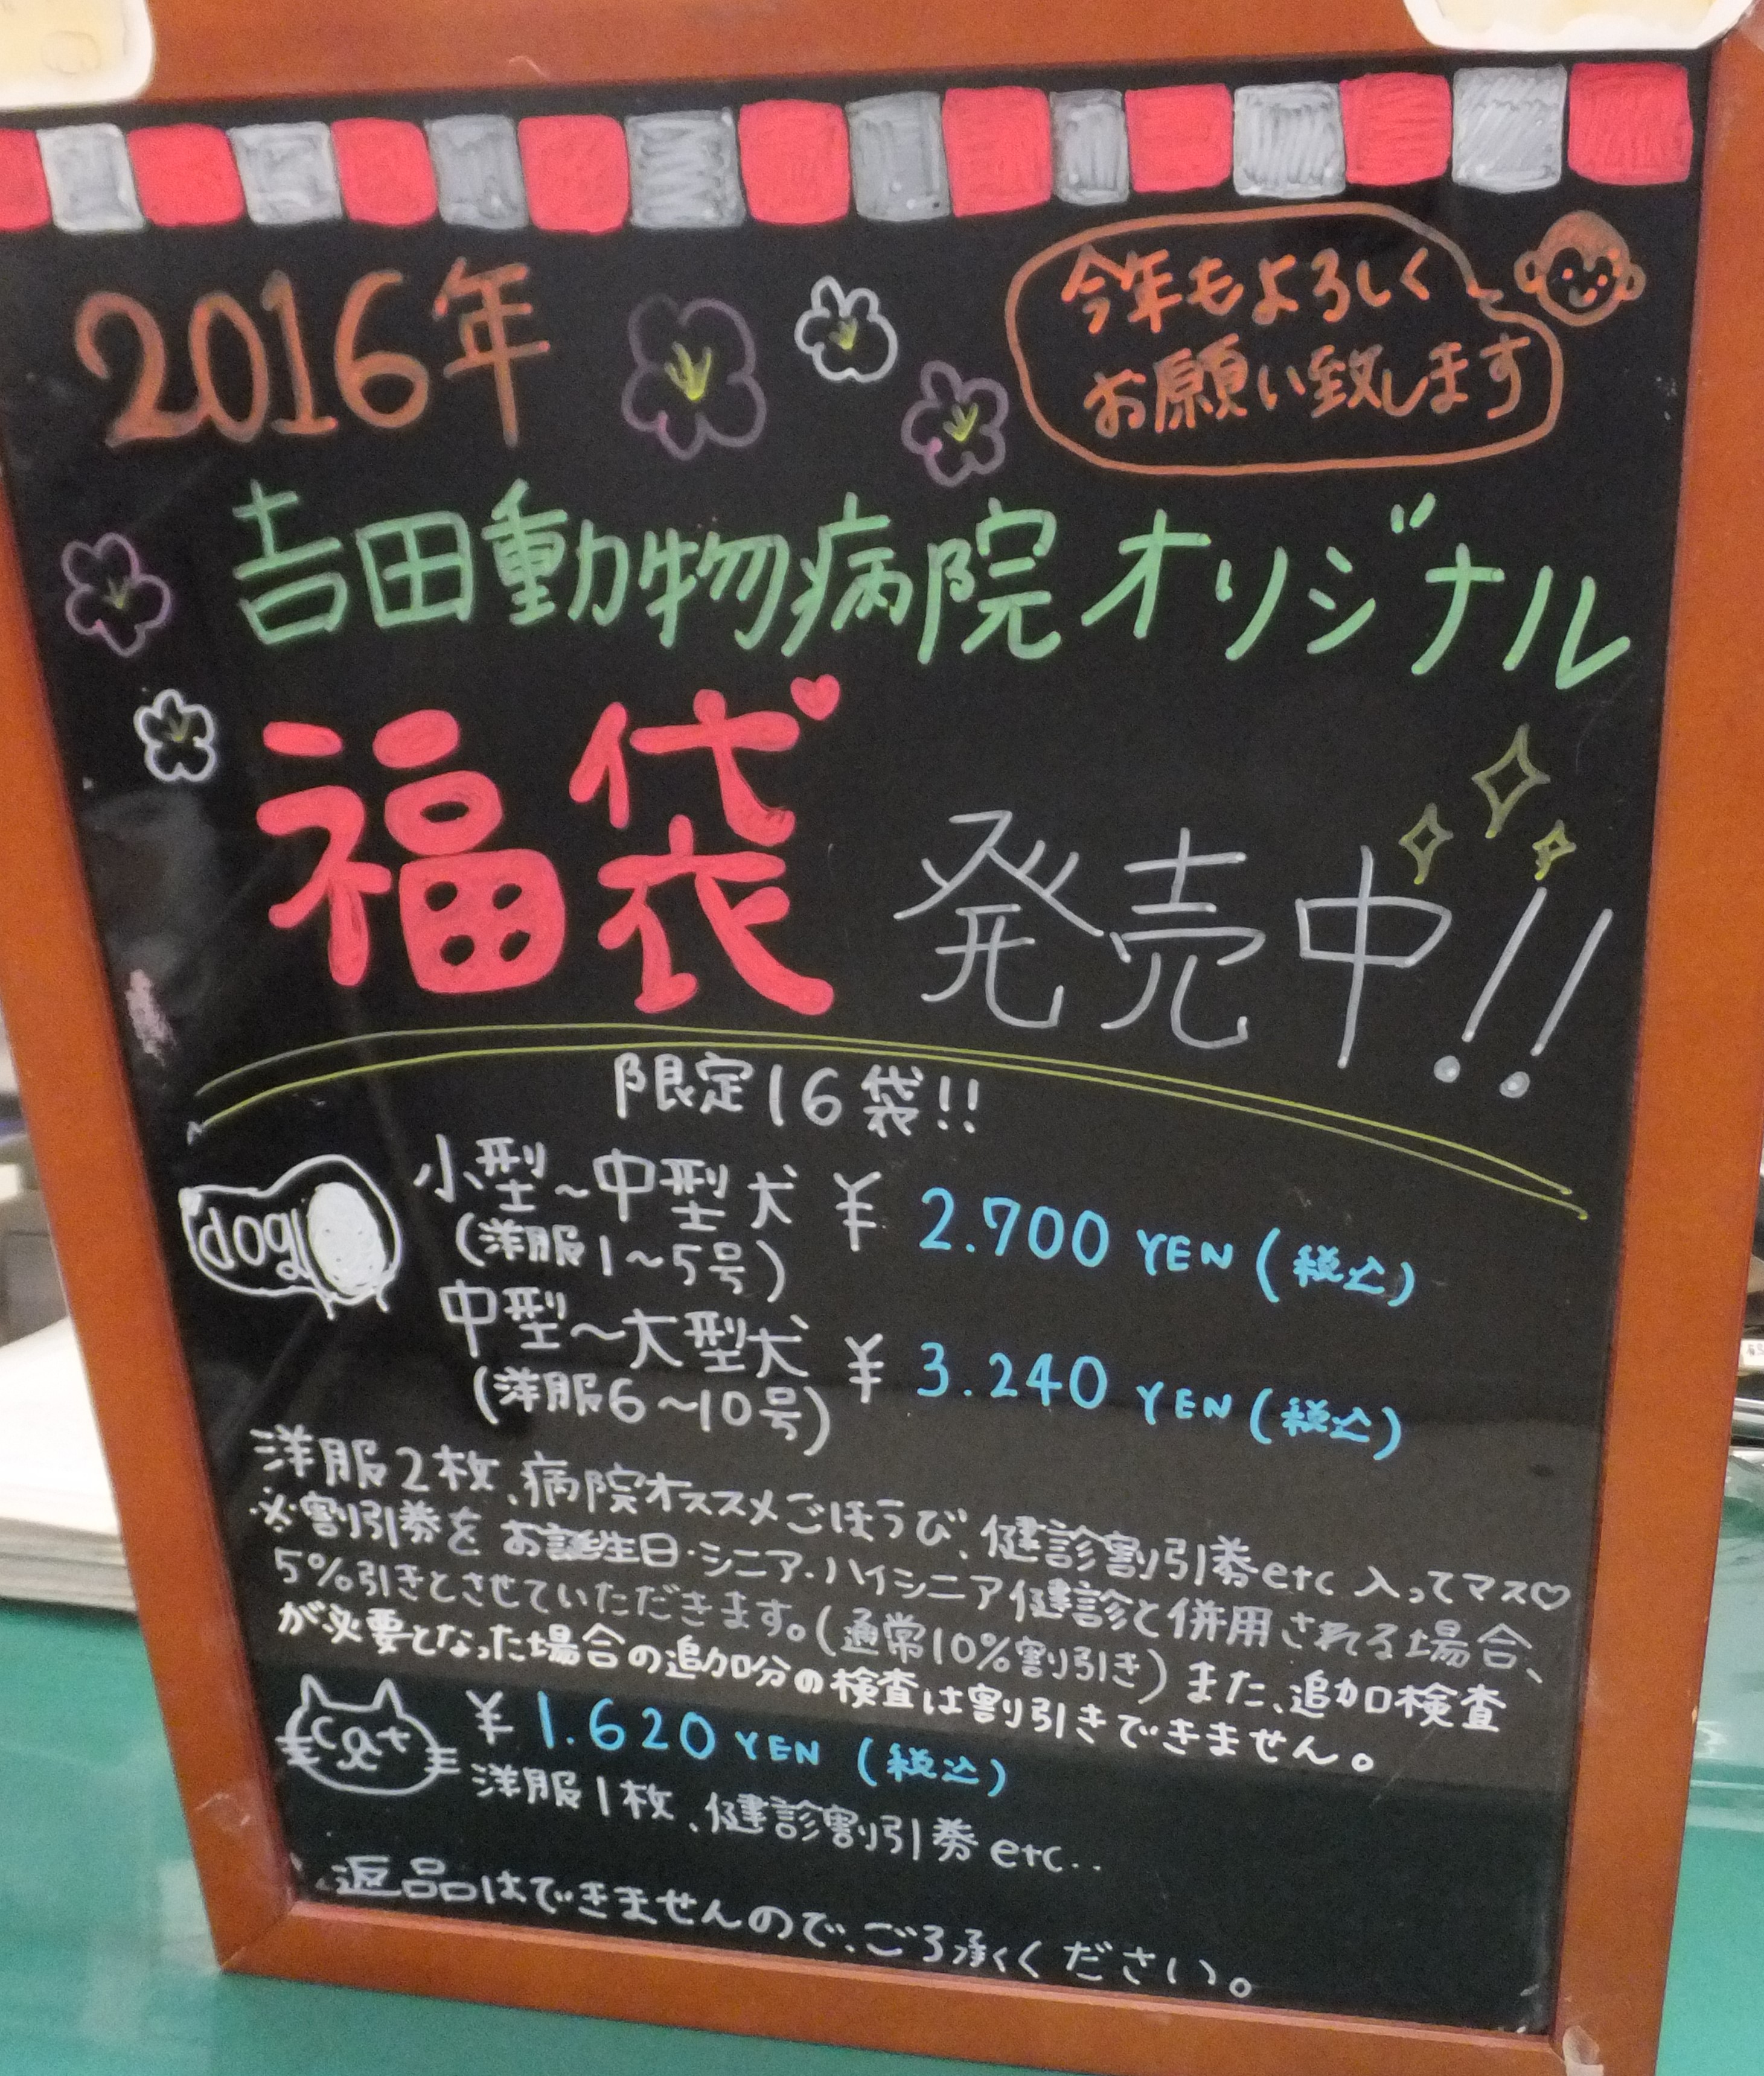 2016年
今年もよろしく
お願い致します
吉田動物病院オリジナル
福袋 発売中!!
限定16袋!!
dog
小型~中型犬 ¥ 2.700 YEN (税込)
(洋服1~5号)
中型~大型犬 ¥ 3.240 YEN (税込)
(洋服6~10号)
洋服2枚、病院オススメごほうび、健診割引券etc 入ってマス♡
※割引券をお誕生日・シニア・ハイシニア健診と併用される場合、
5%引きとさせていただきます。(通常10%割引き) また、追加検査
が必要となった場合の追加分の検査は割引きできません。
cat
¥ 1.620 YEN (税込)
洋服1枚、健診割引券 etc..
返品はできませんので、ご了承ください。